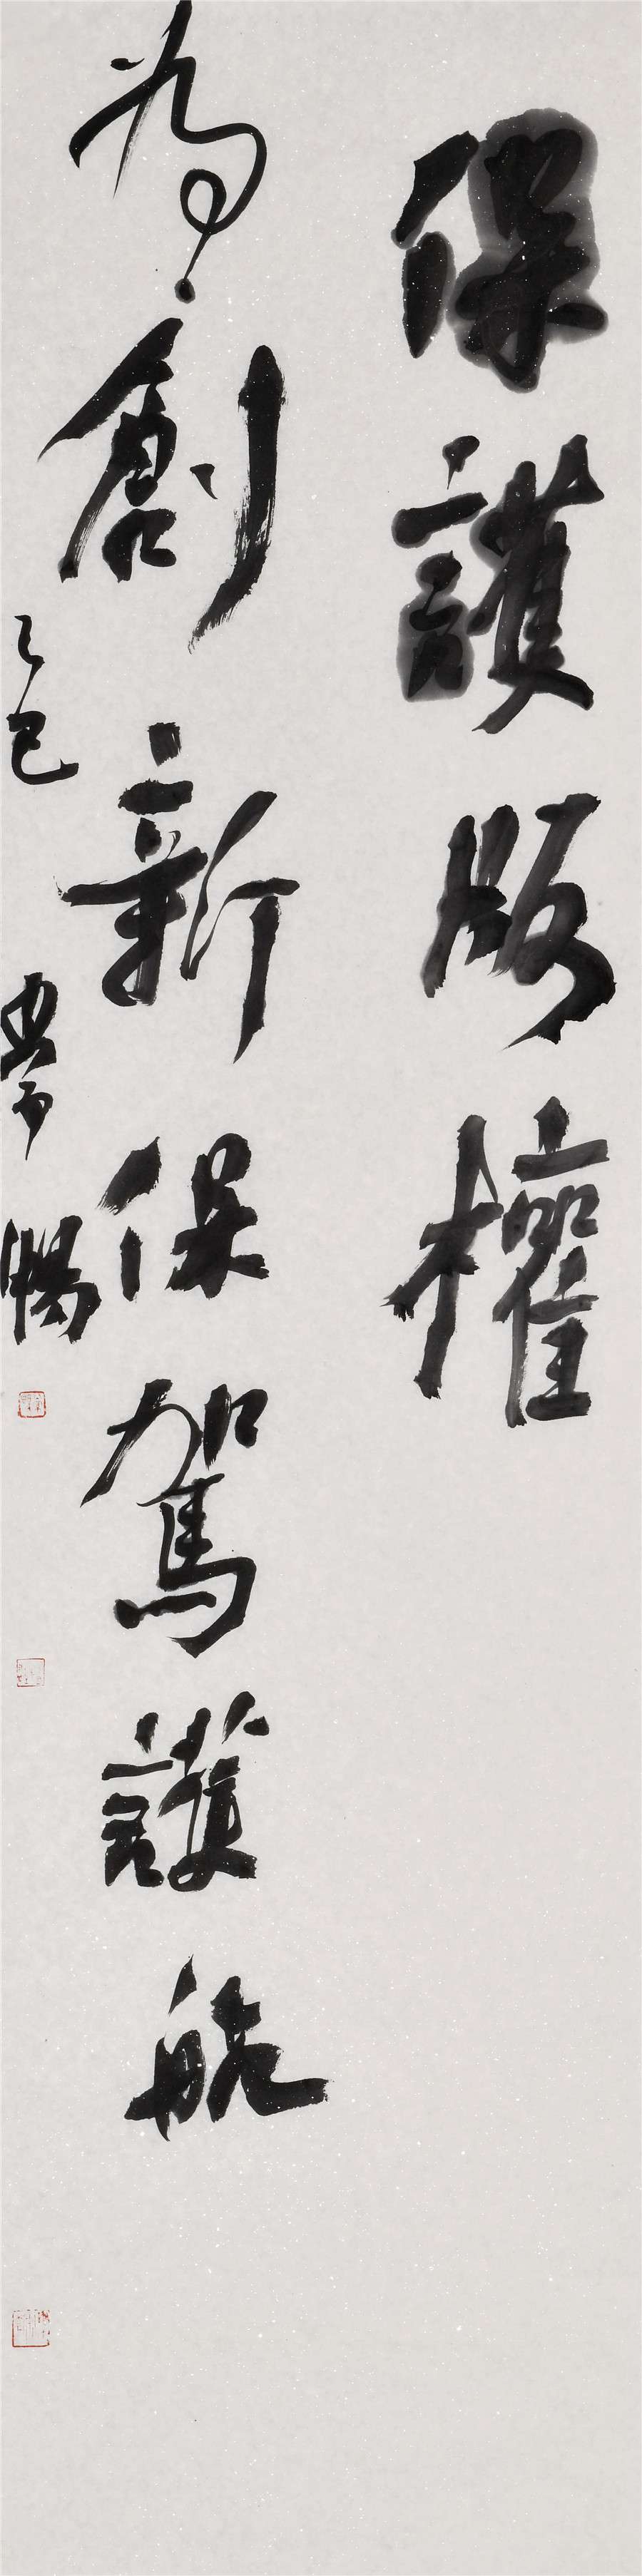 保護版權
為創新保駕護航
乙巳 暢